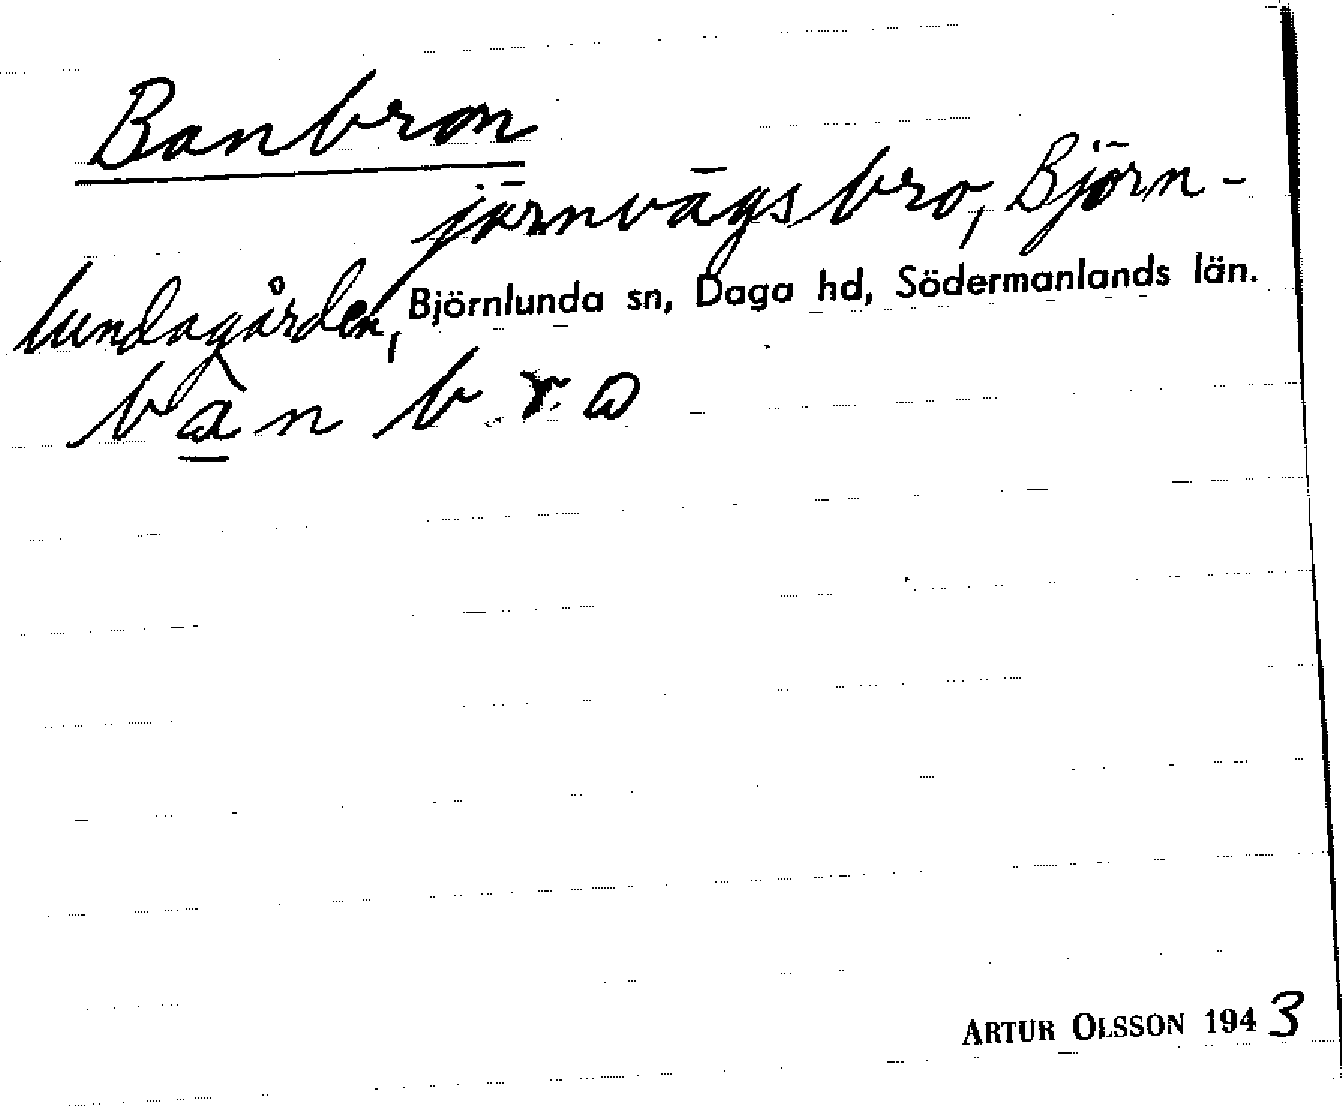 Banbron
järnvägsbro, Björn-
lundagården, Björnlunda sn, Daga hd, Södermanlands län.
ba̲n bro
ARTUR OLSSON 1943